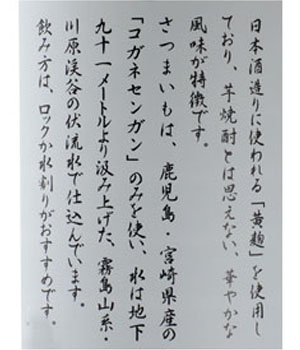 日本酒造りに使われる「黄麹」を使用し
ており、芋焼酎とは思えない、華やかな
風味が特徴です。
さつまいもは、鹿児島・宮崎県産の
「コガネセンガン」のみを使い、水は地下
九十一メートルより汲み上げた、霧島山系・
川原渓谷の伏流水で仕込んでいます。
飲み方は、ロックか水割りがおすすめです。